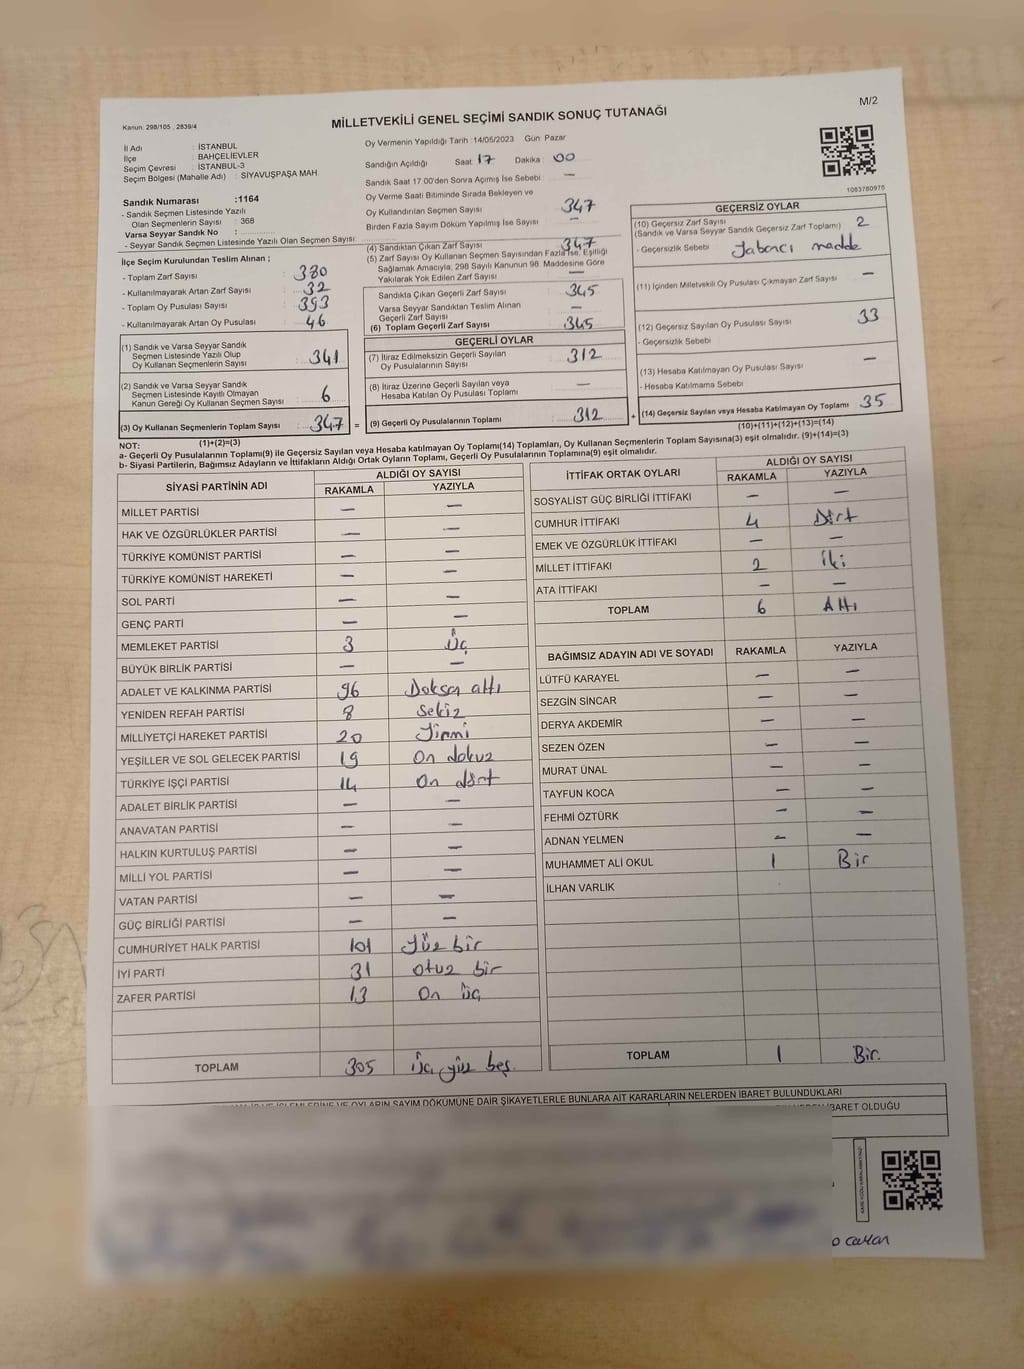 Kanun: 298/105 , 2839/4
MİLLETVEKİLİ GENEL SEÇİMİ SANDIK SONUÇ TUTANAĞI
M/2
İl Adı : İSTANBUL
İlçe : BAHÇELİEVLER
Seçim Çevresi : İSTANBUL-3
Seçim Bölgesi (Mahalle Adı) : SİYAVUŞPAŞA MAH.
Sandık Numarası :1164
- Sandık Seçmen Listesinde Yazılı
Olan Seçmenlerin Sayısı : 368
Varsa Seyyar Sandık No :
- Seyyar Sandık Seçmen Listesinde Yazılı Olan Seçmen Sayısı:
İlçe Seçim Kurulundan Teslim Alınan ;
- Toplam Zarf Sayısı : 380
- Kullanılmayarak Artan Zarf Sayısı : 32
- Toplam Oy Pusulası Sayısı : 393
- Kullanılmayarak Artan Oy Pusulası : 46
(1) Sandık ve Varsa Seyyar Sandık
Seçmen Listesinde Yazılı Olup
Oy Kullanan Seçmenlerin Sayısı : 341
(2) Sandık ve Varsa Seyyar Sandık
Seçmen Listesinde Kayıtlı Olmayan
Kanun Gereği Oy Kullanan Seçmen Sayısı : 6
(3) Oy Kullanan Seçmenlerin Toplam Sayısı : 347 =
Oy Vermenin Yapıldığı Tarih :14/05/2023 Gün: Pazar
Sandığın Açıldığı Saat: 17 Dakika : 00
Sandık Saat 17:00'den Sonra Açımış İse Sebebi : —
Oy Verme Saati Bitiminde Sırada Bekleyen ve
Oy Kullandırılan Seçmen Sayısı : 347
Birden Fazla Sayım Döküm Yapılmış İse Sayısı : —
(4) Sandıktan Çıkan Zarf Sayısı : 347
(5) Zarf Sayısı Oy Kullanan Seçmen Sayısından Fazla İse, Eşitliği
Sağlamak Amacıyla, 298 Sayılı Kanunun 98. Maddesine Göre
Yakılarak Yok Edilen Zarf Sayısı : —
Sandıkta Çıkan Geçerli Zarf Sayısı : 345
Varsa Seyyar Sandıktan Teslim Alınan
Geçerli Zarf Sayısı : —
(6) Toplam Geçerli Zarf Sayısı : 345
GEÇERLİ OYLAR
(7) İtiraz Edilmeksizin Geçerli Sayılan
Oy Pusulalarının Sayısı : 312
(8) İtiraz Üzerine Geçerli Sayılan veya
Hesaba Katılan Oy Pusulası Toplamı : —
(9) Geçerli Oy Pusulalarının Toplamı : 312 +
1083780976
GEÇERSİZ OYLAR
(10) Geçersiz Zarf Sayısı
(Sandık ve Varsa Seyyar Sandık Geçersiz Zarf Toplamı) : 2
- Geçersizlik Sebebi : Yabancı madde
(11) İçinden Milletvekili Oy Pusulası Çıkmayan Zarf Sayısı : —
(12) Geçersiz Sayılan Oy Pusulası Sayısı : 33
- Geçersizlik Sebebi :
(13) Hesaba Katılmayan Oy Pusulası Sayısı : —
- Hesaba Katılmama Sebebi :
(14) Geçersiz Sayılan veya Hesaba Katılmayan Oy Toplamı : 35
NOT: (1)+(2)=(3) (10)+(11)+(12)+(13)=(14)
a- Geçerli Oy Pusulalarının Toplamı(9) ile Geçersiz Sayılan veya Hesaba katılmayan Oy Toplamı(14) Toplamları, Oy Kullanan Seçmenlerin Toplam Sayısına(3) eşit olmalıdır. (9)+(14)=(3)
b- Siyasi Partilerin, Bağımsız Adayların ve İttifakların Aldığı Ortak Oyların Toplamı, Geçerli Oy Pusulalarının Toplamına(9) eşit olmalıdır.
SİYASİ PARTİNİN ADI ALDIĞI OY SAYISI
RAKAMLA YAZIYLA
MİLLET PARTİSİ — —
HAK VE ÖZGÜRLÜKLER PARTİSİ — —
TÜRKİYE KOMÜNİST PARTİSİ — —
TÜRKİYE KOMÜNİST HAREKETİ — —
SOL PARTİ — —
GENÇ PARTİ — —
MEMLEKET PARTİSİ 3 Üç
BÜYÜK BİRLİK PARTİSİ — —
ADALET VE KALKINMA PARTİSİ 96 Doksan altı
YENİDEN REFAH PARTİSİ 8 Sekiz
MİLLİYETÇİ HAREKET PARTİSİ 20 Yirmi
YEŞİLLER VE SOL GELECEK PARTİSİ 19 On dokuz
TÜRKİYE İŞÇİ PARTİSİ 14 On dört
ADALET BİRLİK PARTİSİ — —
ANAVATAN PARTİSİ — —
HALKIN KURTULUŞ PARTİSİ — —
MİLLİ YOL PARTİSİ — —
VATAN PARTİSİ — —
GÜÇ BİRLİĞİ PARTİSİ — —
CUMHURİYET HALK PARTİSİ 101 Yüz bir
İYİ PARTİ 31 otuz bir
ZAFER PARTİSİ 13 On üç
TOPLAM 305 Üç yüz beş
İTTİFAK ORTAK OYLARI ALDIĞI OY SAYISI
RAKAMLA YAZIYLA
SOSYALİST GÜÇ BİRLİĞİ İTTİFAKI — —
CUMHUR İTTİFAKI 4 Dört
EMEK VE ÖZGÜRLÜK İTTİFAKI — —
MİLLET İTTİFAKI 2 İki
ATA İTTİFAKI — —
TOPLAM 6 Altı
BAĞIMSIZ ADAYIN ADI VE SOYADI RAKAMLA YAZIYLA
LÜTFÜ KARAYEL — —
SEZGİN SİNCAR — —
DERYA AKDEMİR — —
SEZEN ÖZEN — —
MURAT ÜNAL — —
TAYFUN KOCA — —
FEHMİ ÖZTÜRK — —
ADNAN YELMEN — —
MUHAMMET ALİ OKUL 1 Bir
İLHAN VARLIK
TOPLAM 1 Bir.
OYLARIN SAYIM DÖKÜMÜNE DAİR ŞİKAYETLERLE BUNLARA AİT KARARLARIN NELERDEN İBARET BULUNDUKLARI
İBARET OLDUĞU